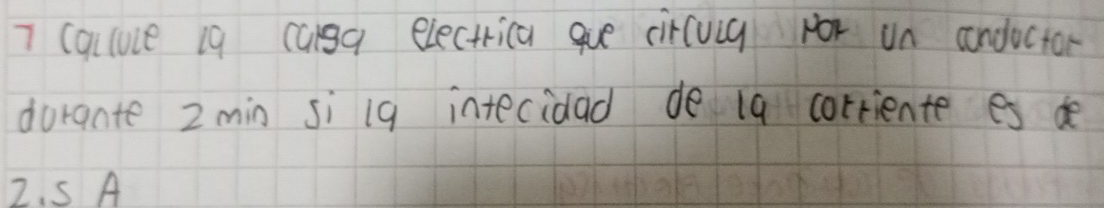 7 Calcule la carga electrica que circula por un conductor
durante 2 min si la intecidad de la corriente es de
2.5 A